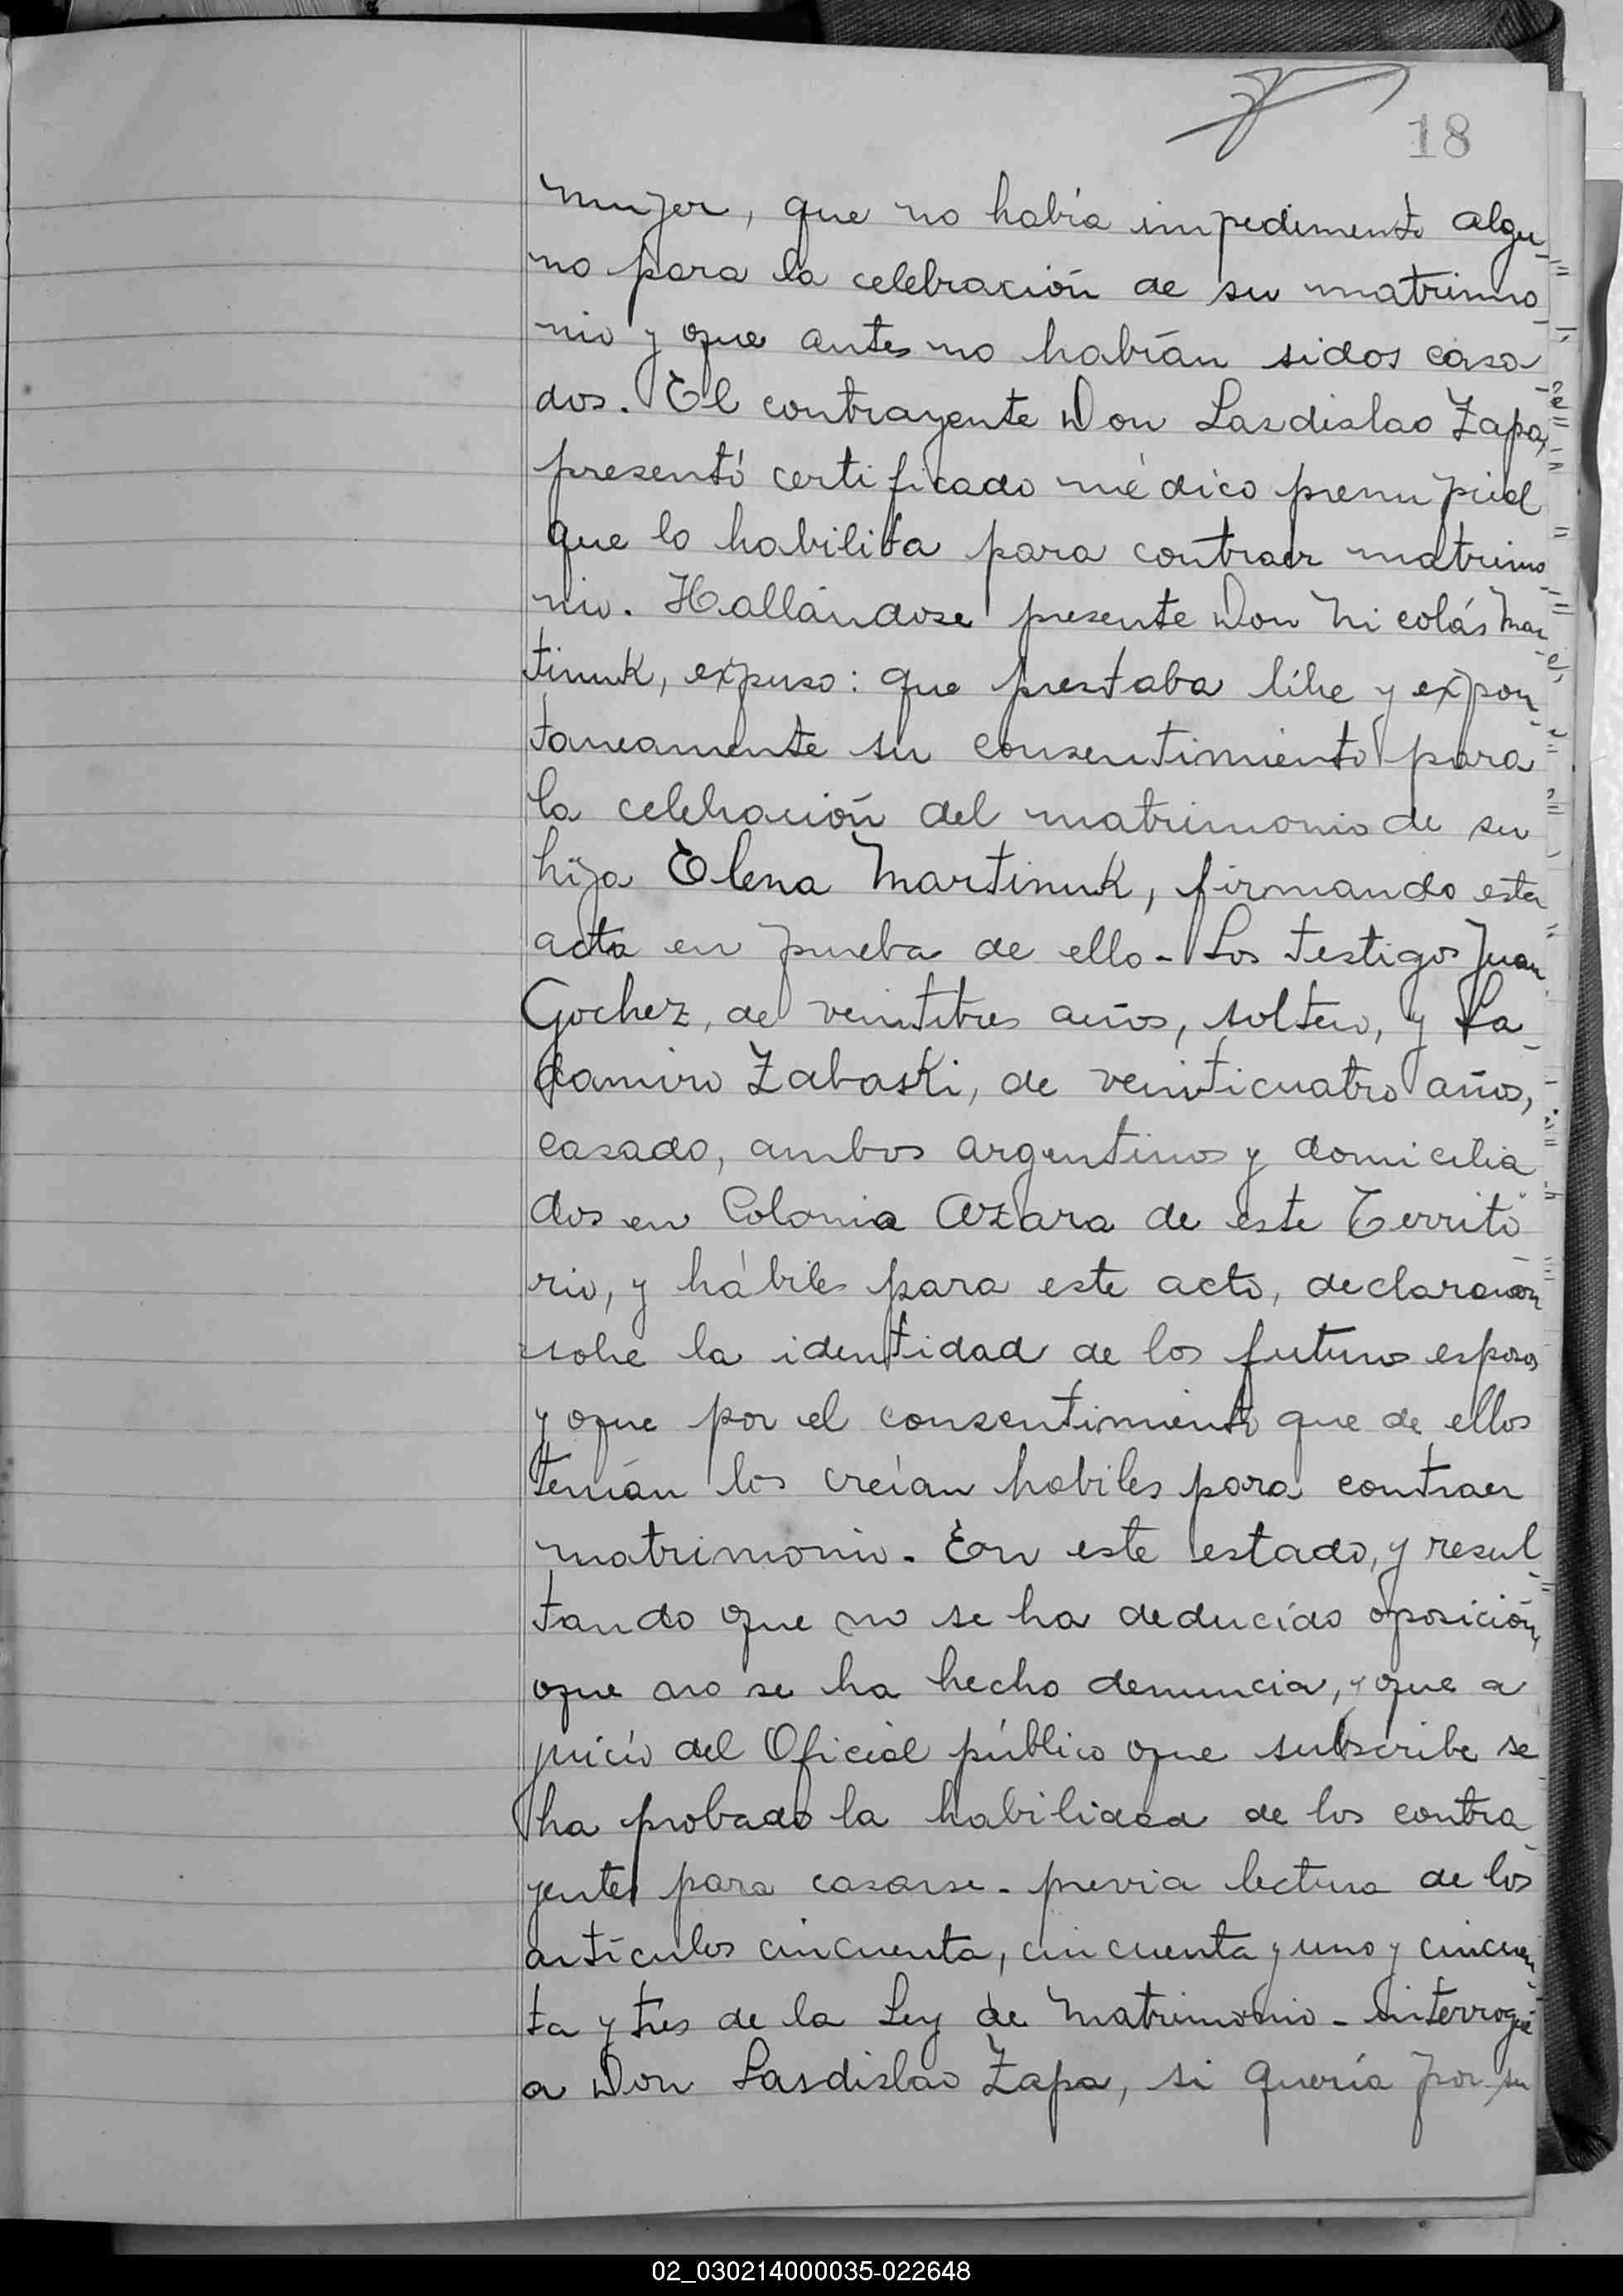 18
mujer, que no había impedimento algu-
no para la celebración de su matrimo-
nio y que antes no habían sidos casa-
dos. El contrayente Don Lasdislao Zapa,
presentó certificado médico prenupcial
que lo habilita para contraer matrimo-
nio. Hallándose presente Don Nicolás Mar-
tinuk, expuso: que prestaba libre y expon-
taneamente su consentimiento para
la celebración del matrimonio de su
hija Elena Martinuk, firmando esta
acta en prueba de ello - Los testigos Juan
Gochez, de veintitres años, soltero, y La-
damiro Zabaski, de veinticuatro años,
casado, ambos argentinos y domicilia-
dos en Colonia Azara de este Territo-
rio, y hábiles para este acto, declararon
sobre la identidad de los futuros esposos
y que por el consentimiento que de ellos
tenían los creían habiles para contraer
matrimonio. En este estado, y resul-
tando que no se ha deducido oposición,
que no se ha hecho denuncia, y que a
juicio del Oficial público que subscribe se
ha probado la habilidad de los contra-
yentes para casarse - previa lectura de los
artículos cincuenta, cincuenta y uno y cincuen-
ta y tres de la Ley de Matrimonio - interrogué
a Don Lasdislao Zapa, si quería por su
02_030214000035-022648